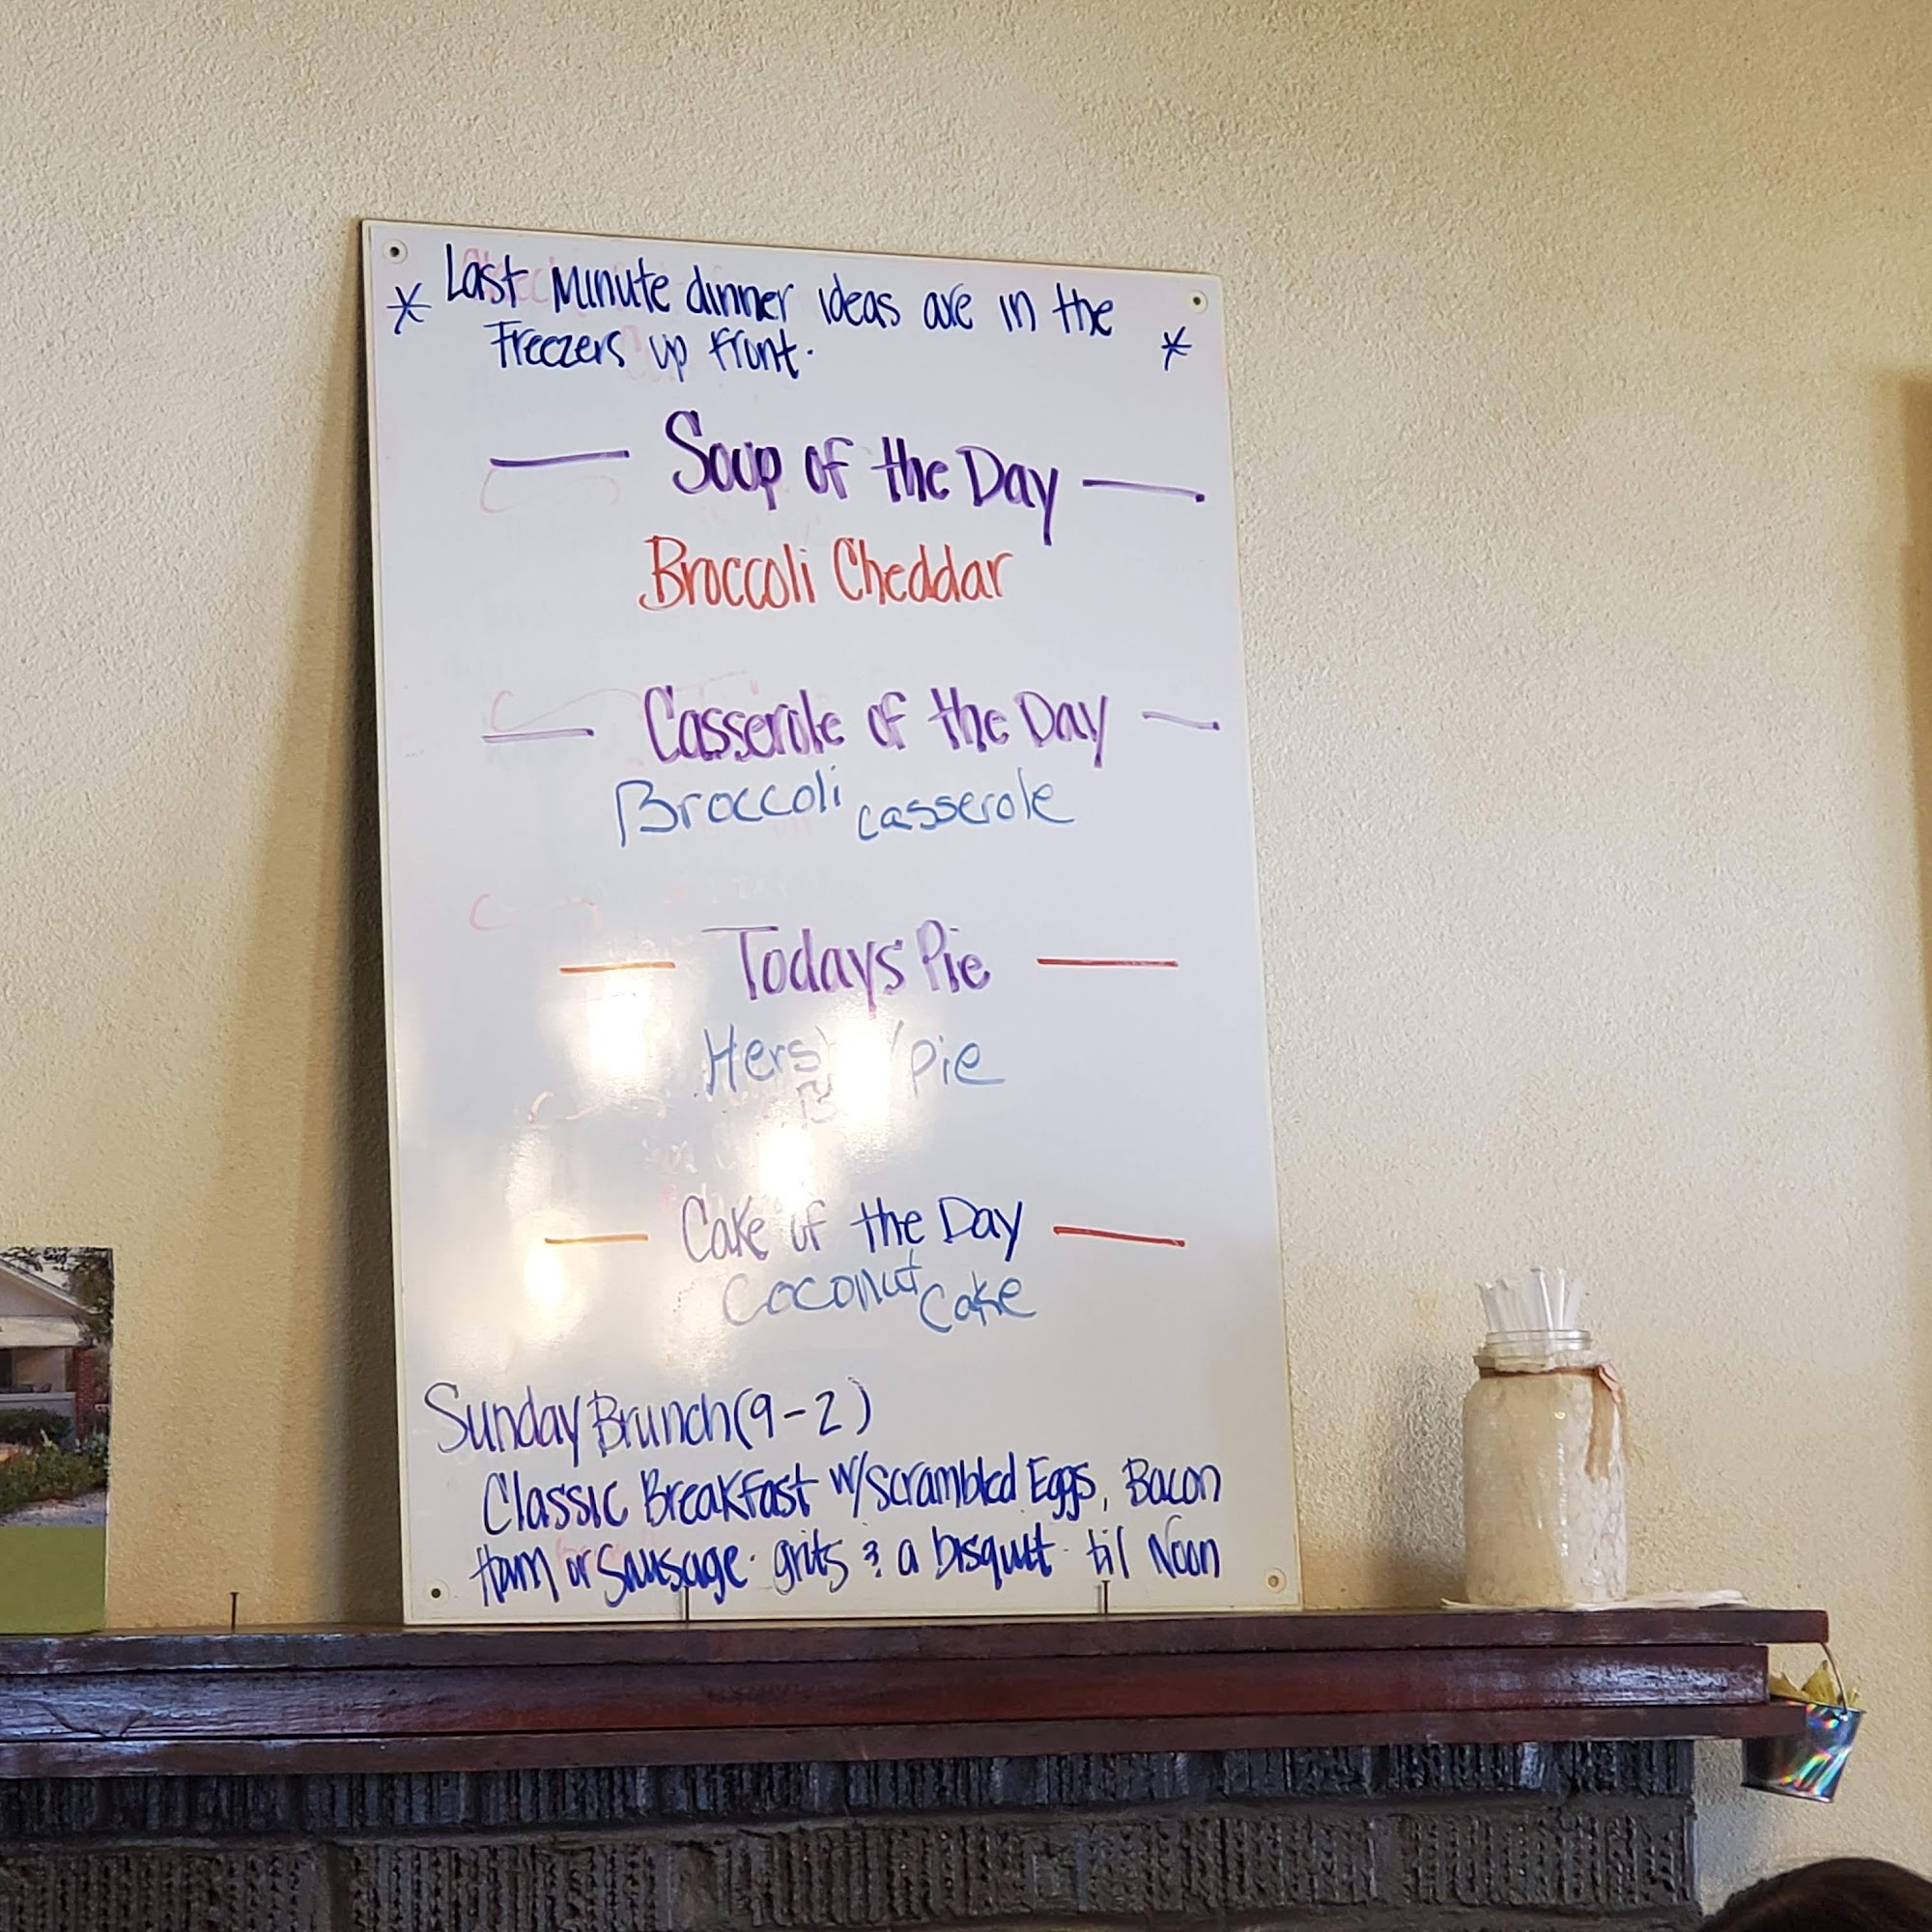 * Last Minute dinner ideas are in the
Freezers up front. *
— Soup of the Day —
Broccoli Cheddar
— Casserole of the Day —
Broccoli casserole
— Todays Pie —
pie
— Cake of the Day —
Coconut Cake
Sunday Brunch (9-2)
Classic Breakfast w/scrambled Eggs, Bacon
Ham or Sausage. grits & a bisquit. til Noon